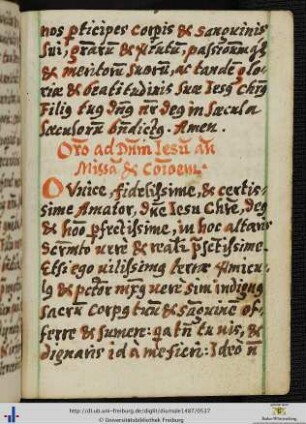 nos pticipes corpis & sanguinis
sui, gratiæ & virtutũ, passionumq̃
& meritorum suorũ, ac tandẽ glo
riæ & beatitudinis suæ Iesq̃ chrs̃
Filiq tuq dnq̃ nr̃ deq in sæcula
sæculorũ bñdictq. Amen.
Oro ad Dñm Iesũ añ
Missã & Cõioem.
O Vnice, fidelissime, & certis-
sime Amator, dñe Iesu Chre, deq
& hõo pfectissime, in hoc altaris
Scr̃mto vere & realr̃ pſctissime.
Etsi ego vilissimq terræ
& pctor mxq vere sim indignq
sacrũ Corpq tuũ & sanguinẽ of-
ferre & sumere: qatñ tu vis, &
dignaris id à me fieri: Ideò ñ
http://dl.ub.uni-freiburg.de/diglit/diurnale1487/0537
© Universitätsbibliothek Freiburg
Baden-Württemberg